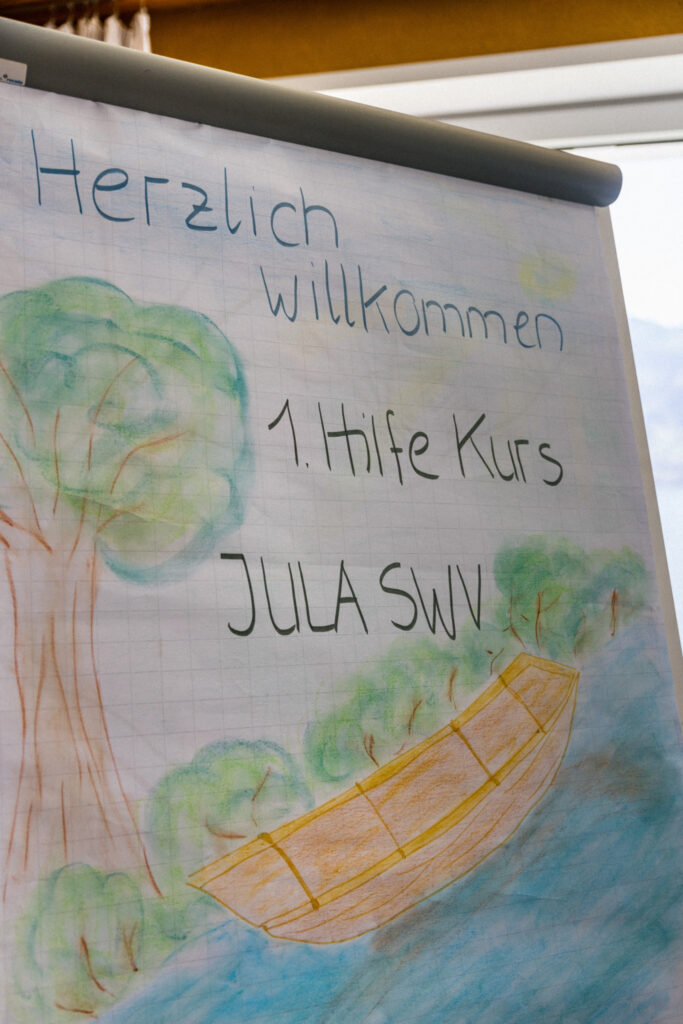 Herzlich
willkommen
1. Hilfe Kurs
JULA SWV